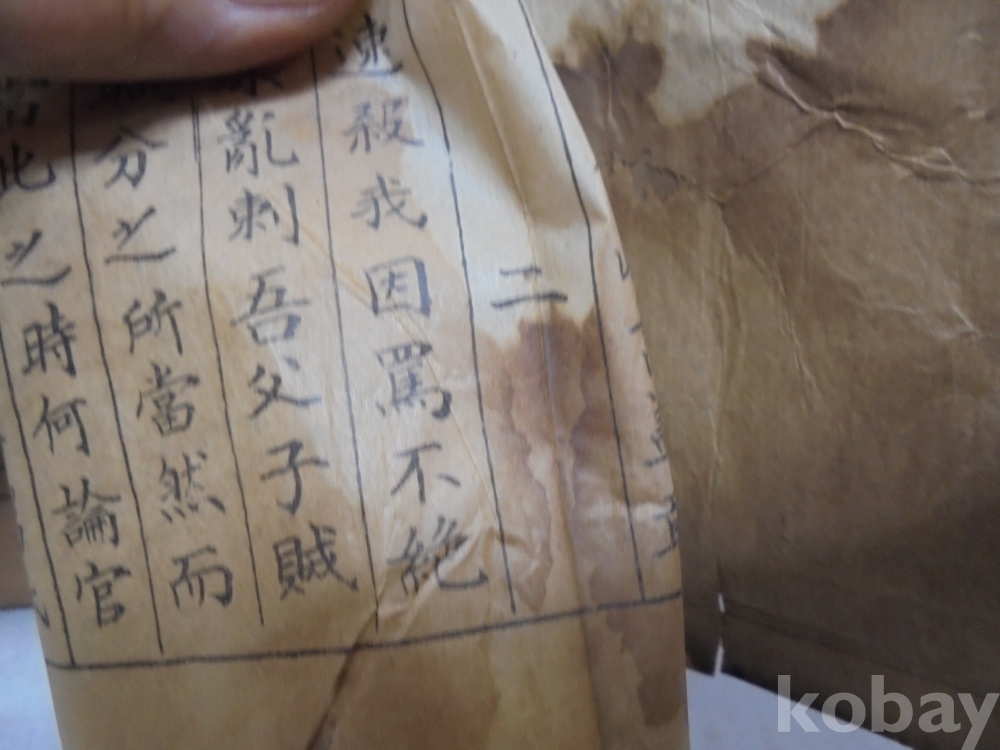 二
速殺我因罵不絶
亂刺吾父子賊
分之所當然而
當此之時何論官
kobay